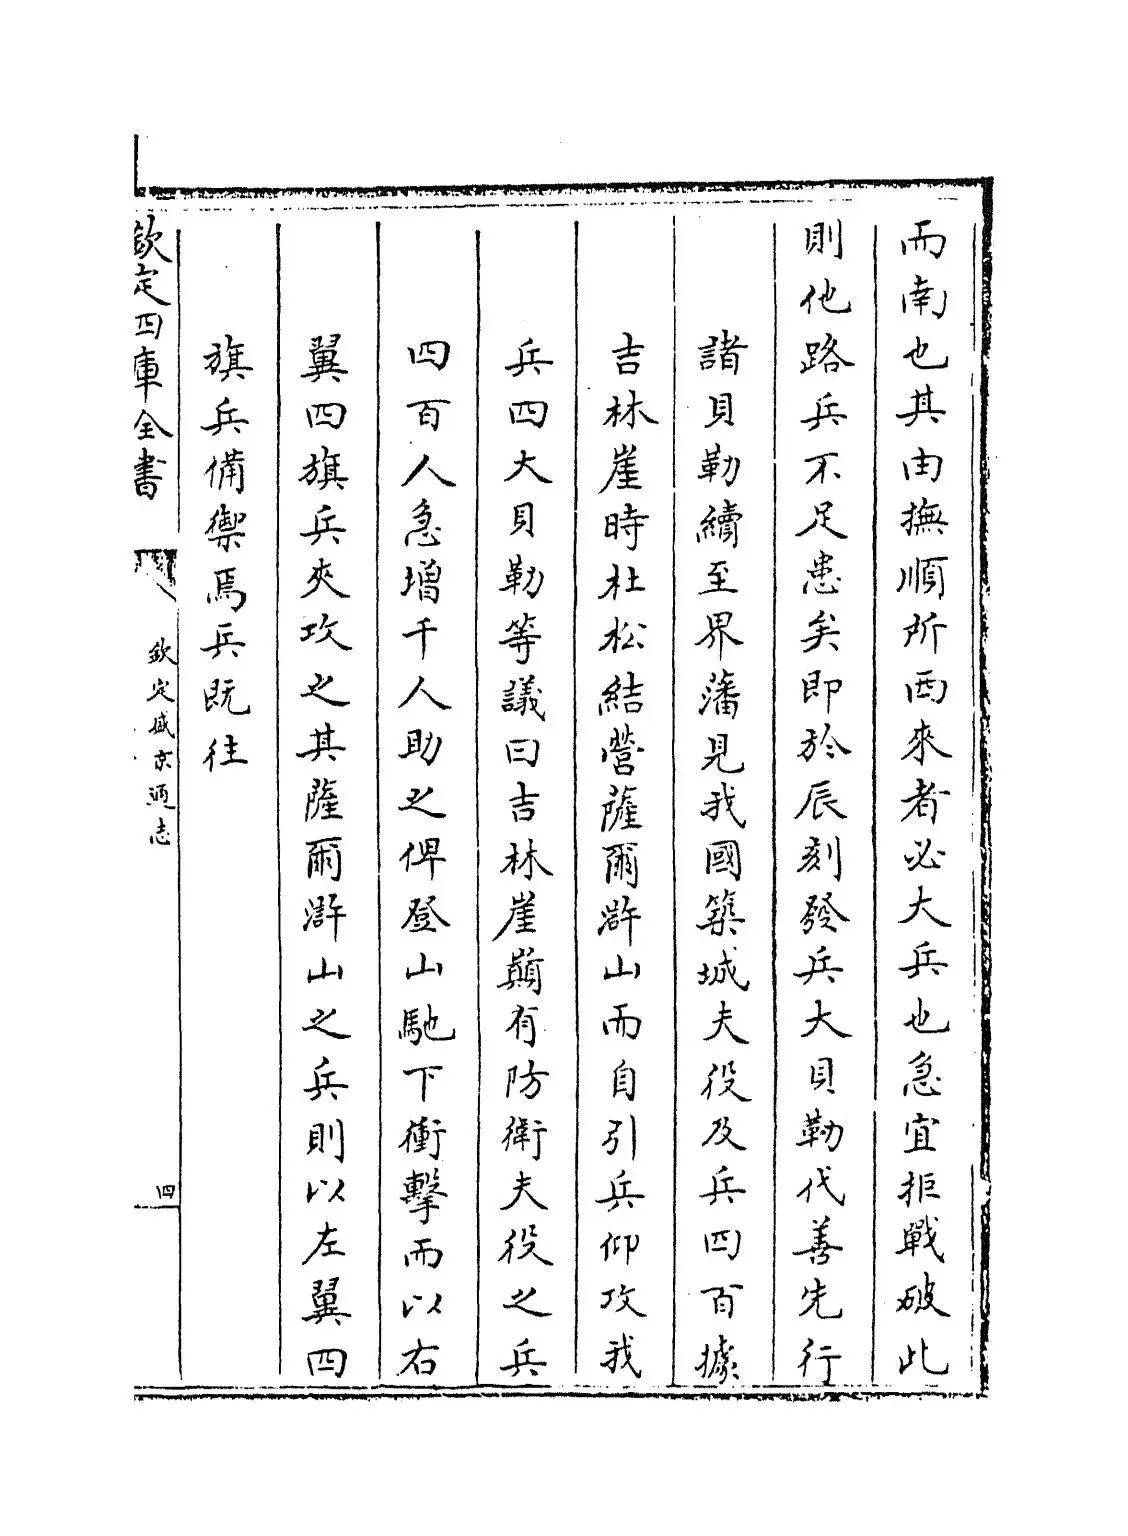 而南也其由撫順所西來者必大兵也急宜拒戰破此
則他路兵不足患矣即於辰刻發兵大貝勒代善先行
諸貝勒續至界藩見我國築城夫役及兵四百據
吉林崖時杜松結營薩爾滸山而自引兵仰攻我
兵四大貝勒等議曰吉林崖巔有防衛夫役之兵
四百人急增千人助之俾登山馳下衝擊而以右
翼四旗兵夾攻之其薩爾滸山之兵則以左翼四
旗兵備禦焉兵既往
欽定四庫全書
欽定盛京通志
四